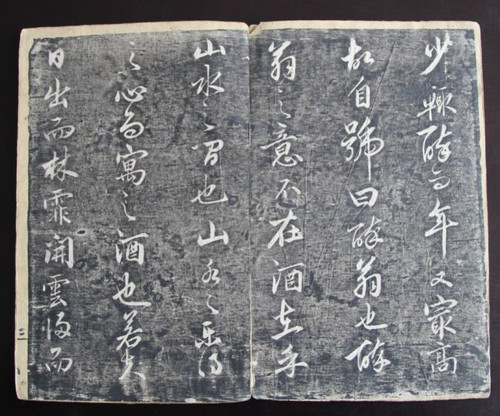 少輒醉而年又最高
故自號曰醉翁也醉
翁之意不在酒在乎
山水之間也山水之樂得
之心而寓之酒也若夫
日出而林霏開雲歸而
三